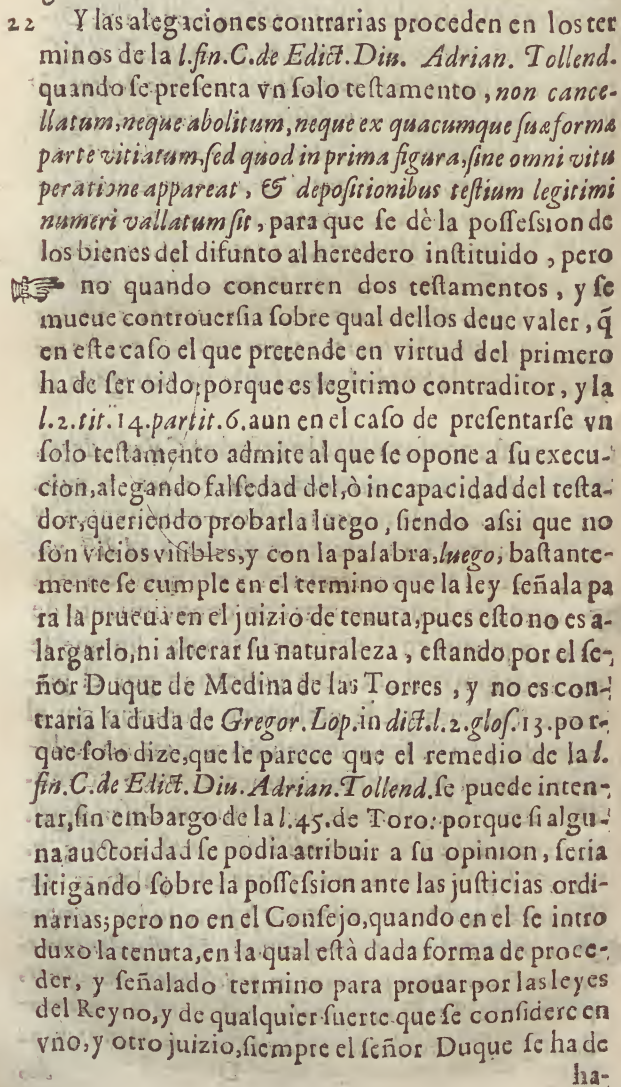 22 Y las alegaciones contrarias proceden en los ter
minos de la l.fin.C.de Edict.Diu. Adrian. Tollend.
quando ſe preſenta vn ſolo teſtamento , non cance-
llatum,neque abolitum,neque ex quacumque ſuæ forma
parte vitiatum,ſed quod in prima figura,ſine omni vitu
peratione appareat , & depoſitionibus teſtium legitimi
numeri vallatum ſit , para que ſe dè la poſſeſsion de
los bienes del difunto al heredero inſtituido , pero
☞ no quando concurren dos teſtamentos , y ſe
mueue controuerſia ſobre qual dellos deue valer , q̃
en eſte caſo el que pretende en virtud del primero
ha de ſer oido;porque es legitimo contraditor , y la
l.2.tit.14.partit.6.aun en el caſo de preſentarſe vn
ſolo teſtamento admite al que ſe opone a ſu execu-
cion,alegando falſedad del,ò incapacidad del teſta-
dor,queriendo probarla luego , ſiendo aſsi que no
ſon vicios viſibles,y con la palabra,luego, baſtante-
mente ſe cumple en el termino que la ley ſeñala pa
ra la prueua en el juizio de tenuta,pues eſto no es a-
largarlo,ni alterar ſu naturaleza , eſtando por el ſe-
ñor Duque de Medina de las Torres , y no es con-
traria la duda de Gregor.Lop.in dict.l.2.gloſ.13.por-
que ſolo dize,que le parece que el remedio de la l.
fin.C.de Edict.Diu.Adrian.Tollend.ſe puede inten-
tar,ſin embargo de la l.45.de Toro: porque ſi algu-
na auctoridad ſe podia atribuir a ſu opinion , ſeria
litigando ſobre la poſſeſsion ante las juſticias ordi-
narias;pero no en el Conſejo,quando en el ſe intro
duxo la tenuta,en la qual eſtà dada forma de proce-
der, y ſeñalado termino para prouar por las leyes
del Reyno,y de qualquier ſuerte que ſe conſidere en
vno,y otro juizio,ſiempre el ſeñor Duque ſe ha de
ha-